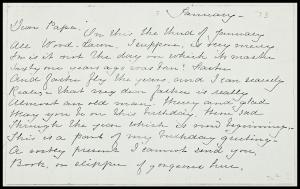 January —
Dear Papa:
On this the third of January
All Wood-lawn, I suppose, is very merry
For is it not the day on which it marks
Sixty-one years ago was born
And faster fly the years, and I can scarcely
Realize that my dear father is really
Almost an old man. Merry and glad
May you be on this birthday, them sad
Through the year which is now beginning —
This is a part of my birthday greeting —
A costly present I cannot send you,
Book, or slippers of gorgeous hue,